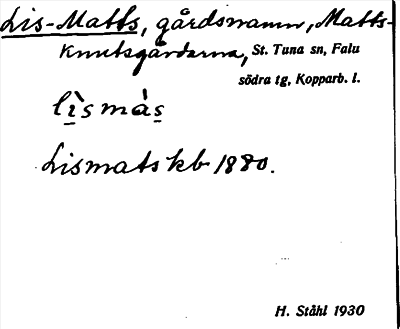 Lis-Matts, gårdsnamn, Matts-
Knutsgårdarna, St. Tuna sn, Falu
södra tg, Kopparb. l.
lì̱s màs̱
Lismats kb 1880.
H. Ståhl 1930